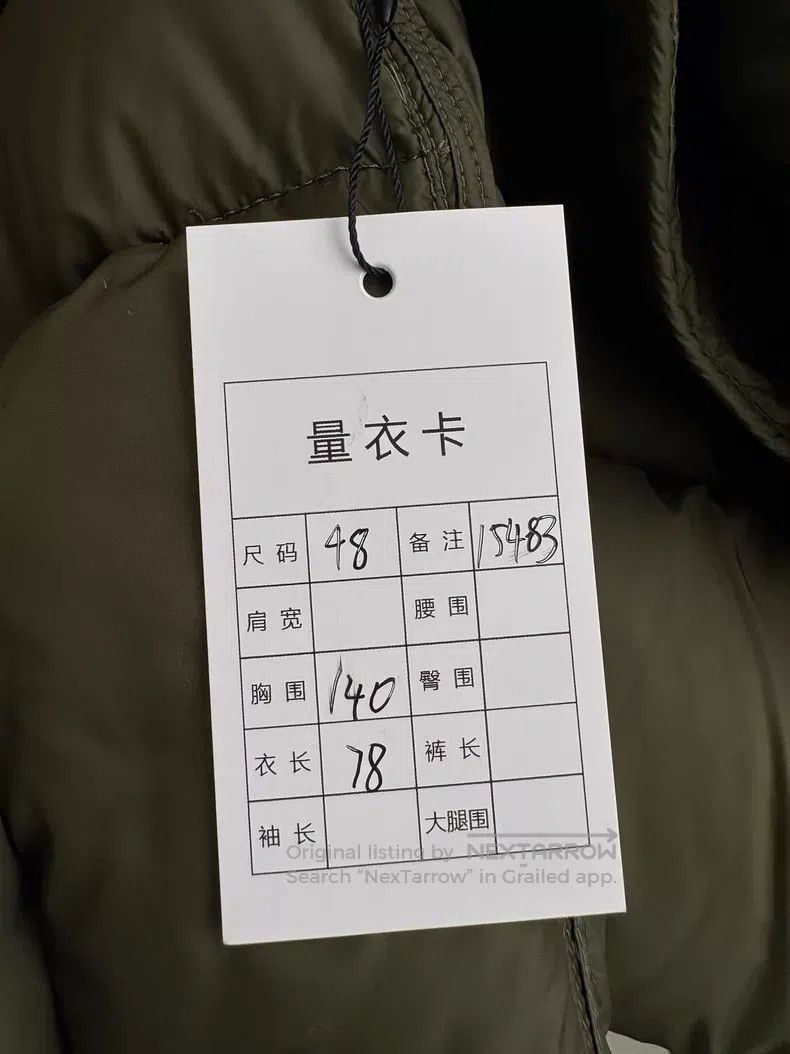 量衣卡
尺码 48 备注 15483
肩宽 腰围
胸围 140 臀围
衣长 78 裤长
袖长 大腿围
Original listing by NEXTARROW
Search “NexTarrow” in Grailed app.